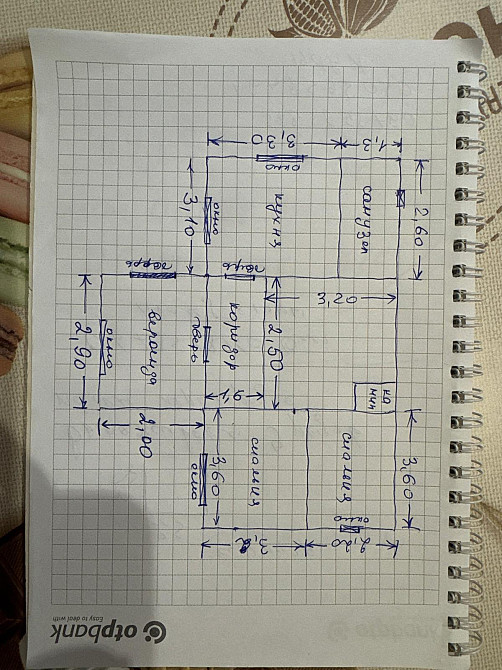 1,3
3,30
окно
кухня
санузел
2,60
3,10
окно
дверь
дверь
3,20
коридор
2,50
веранда
дверь
окно
2,90
1,9
2,00
3,60
спальня
спальня
3,60
окно
окно
2,20
otpbank
Easy to deal with